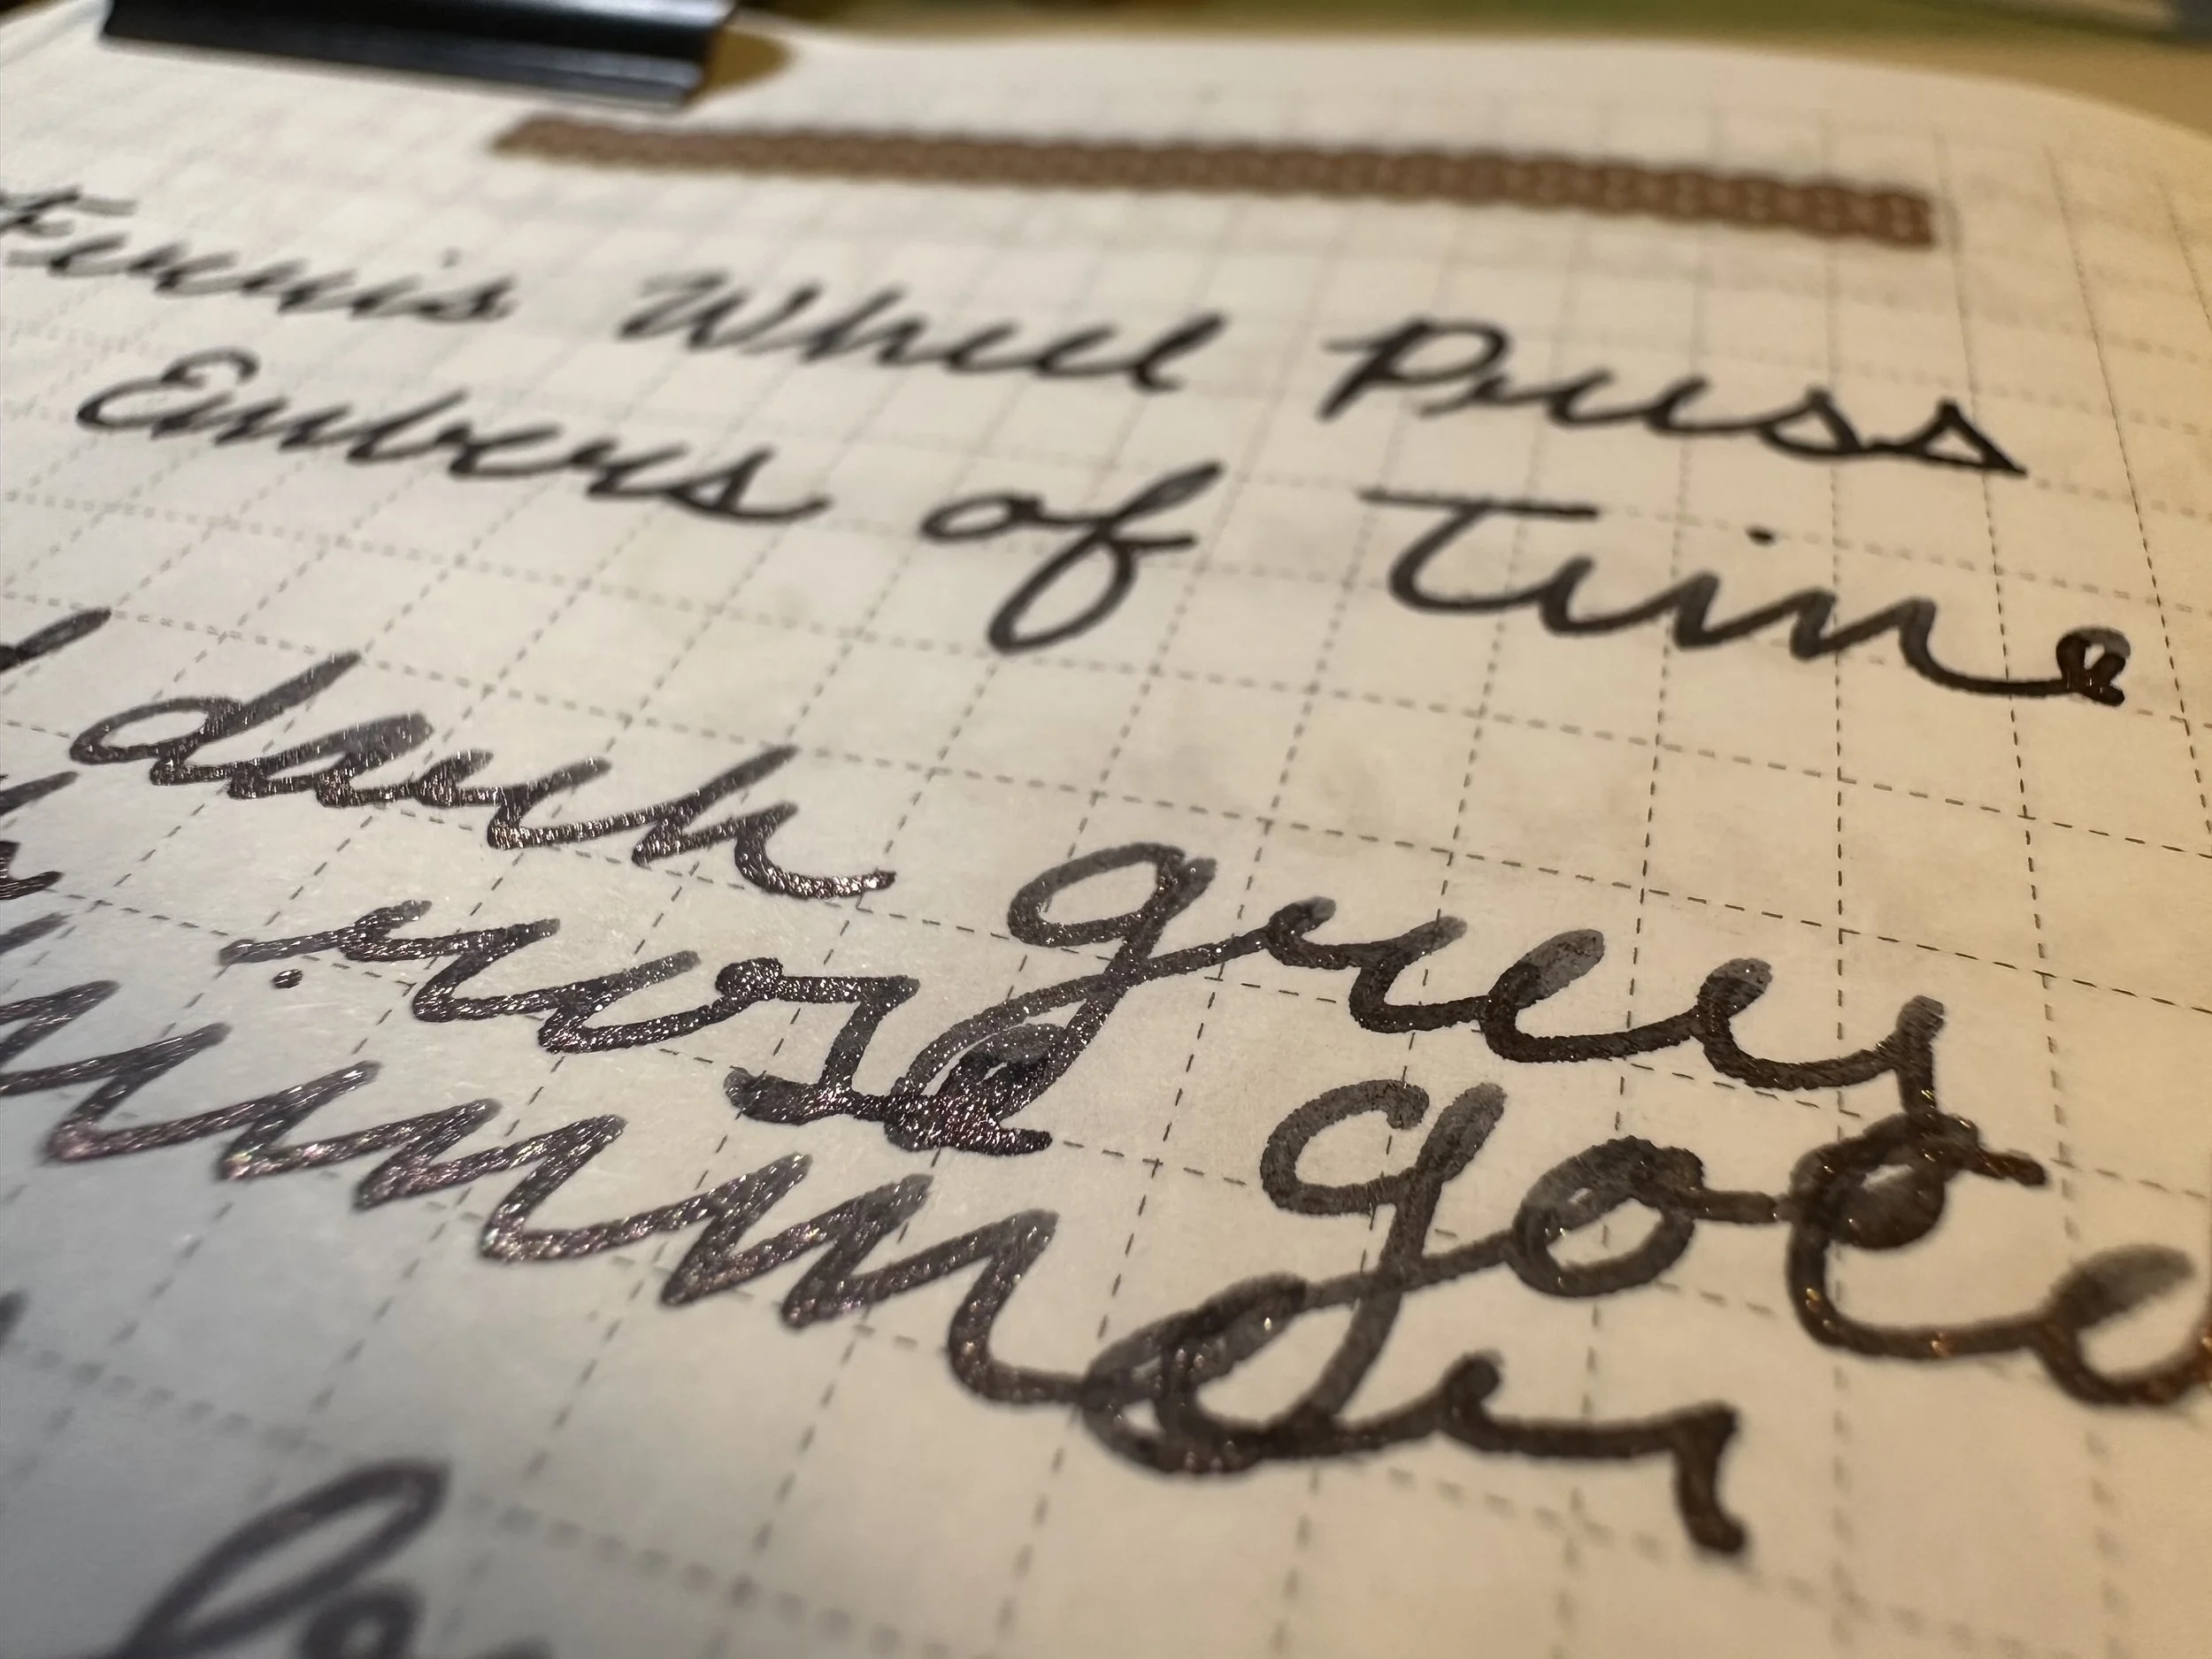 Ferris Wheel Press
Embers of Time
dark green
rose gold
shimmer